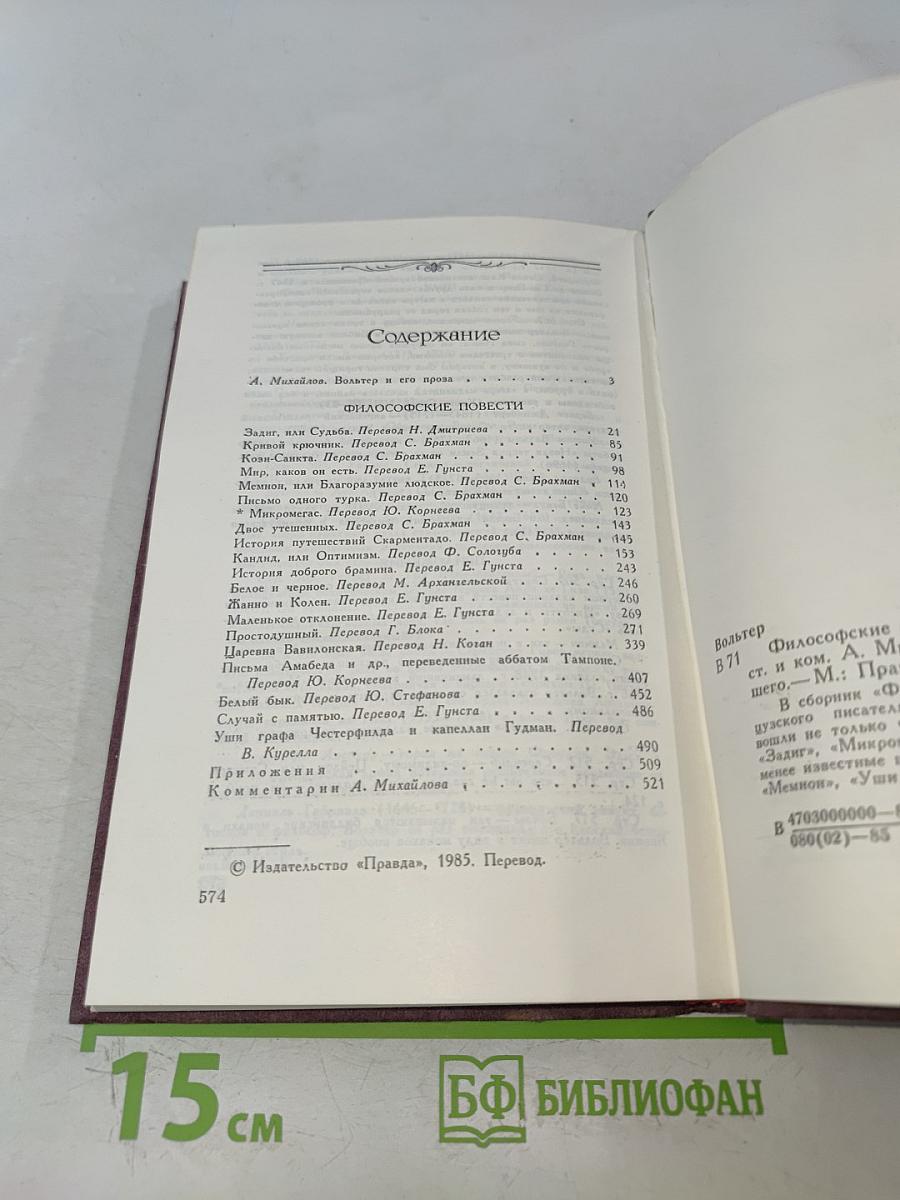 Содержание
А. Михайлов. Вольтер и его проза . . . . . . . . . 3
ФИЛОСОФСКИЕ ПОВЕСТИ
Задиг, или Судьба. Перевод Н. Дмитриева . . . . . . . 21
Кривой крючник. Перевод С. Брахман . . . . . . . 85
Кози-Санкта. Перевод С. Брахман . . . . . . . . 91
Мир, каков он есть. Перевод Е. Гунста . . . . . . . 98
Мемнон, или Благоразумие людское. Перевод С. Брахман . 114
Письмо одного турка. Перевод С. Брахман . . . . . . 120
* Микромегас. Перевод Ю. Корнеева . . . . . . . . 123
Двое утешенных. Перевод С. Брахман . . . . . . . 143
История путешествий Скарментадо. Перевод С. Брахман . 145
Кандид, или Оптимизм. Перевод Ф. Сологуба . . . . . 153
История доброго брамина. Перевод Е. Гунста . . . . . 243
Белое и черное. Перевод М. Архангельской . . . . . . 246
Жанно и Колен. Перевод Е. Гунста . . . . . . . . 260
Маленькое отклонение. Перевод Е. Гунста . . . . . . 269
Простодушный. Перевод Г. Блока . . . . . . . . . 271
Царевна Вавилонская. Перевод Н. Коган . . . . . . . 339
Письма Амабеда и др., переведенные аббатом Тампоне.
Перевод Ю. Корнеева . . . . . . . . . . . . 407
Белый бык. Перевод Ю. Стефанова . . . . . . . . 452
Случай с памятью. Перевод Е. Гунста . . . . . . . . 486
Уши графа Честерфилда и капеллан Гудман. Перевод
В. Курелла . . . . . . . . . . . . . . . . 490
Приложения . . . . . . . . . . . . . . . . 509
Комментарии А. Михайлова . . . . . . . . . . 521
© Издательство «Правда», 1985. Перевод.
574
Вольтер
В 71
Философские
ст. и ком. А. М
шего.— М.: Пра
В сборник «Ф
цузского писател
вошли не только
«Задиг», «Микро
менее известные
«Мемнон», «Уши
В 4703000000—
080(02)—85
15 см
БФ БИБЛИОФАН